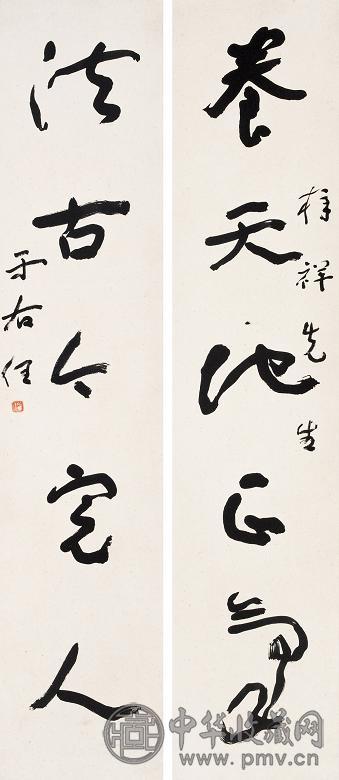 養天地正氣
祥先生
法古今完人
于右任
中华收藏网
www.pmv.cn